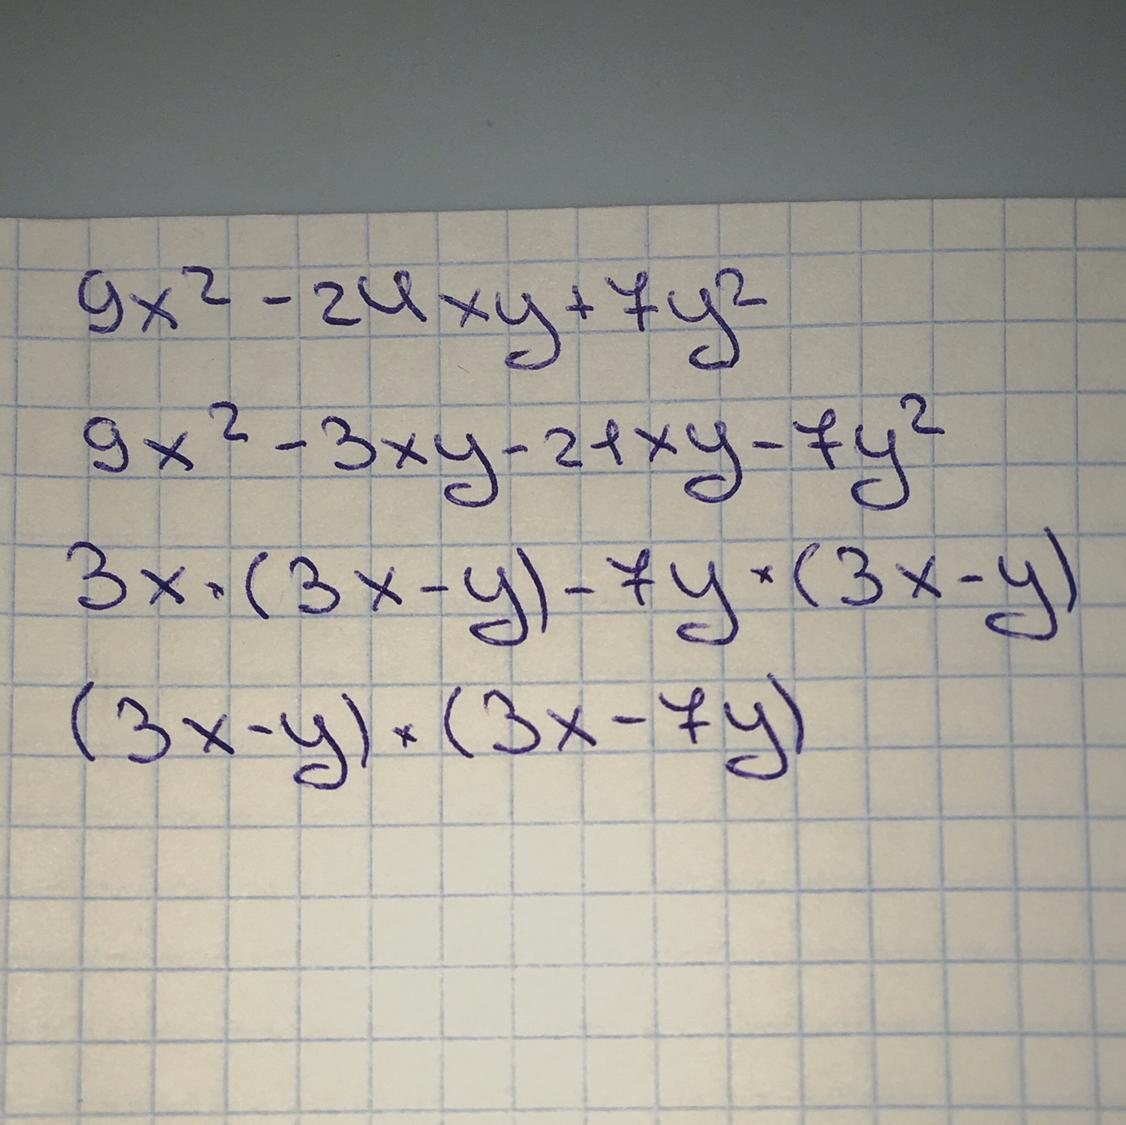 9x² - 24xy + 7y²
9x² - 3xy - 21xy - 7y²
3x · (3x - y) - 7y · (3x - y)
(3x - y) · (3x - 7y)